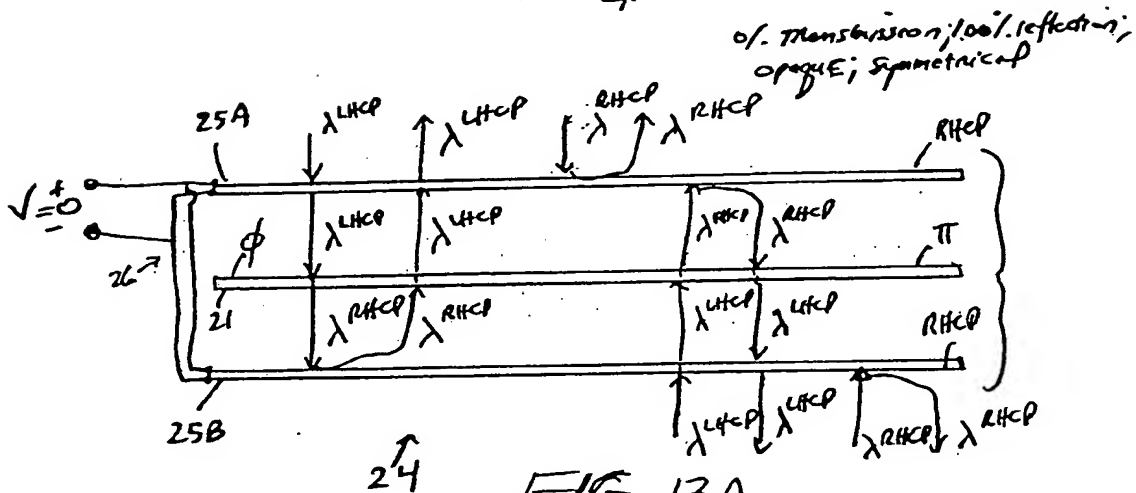 0%. Transmission; 100%. reflection;
opaque; symmetrical
25A
λ^LHCP λ^LHCP λ^RHCP λ^RHCP RHCP
V=0
+
-
λ^LHCP λ^LHCP λ^RHCP λ^RHCP
ϕ π
26
21
λ^RHCP λ^RHCP λ^LHCP λ^LHCP RHCP
25B
λ^LHCP λ^LHCP λ^RHCP λ^RHCP
24